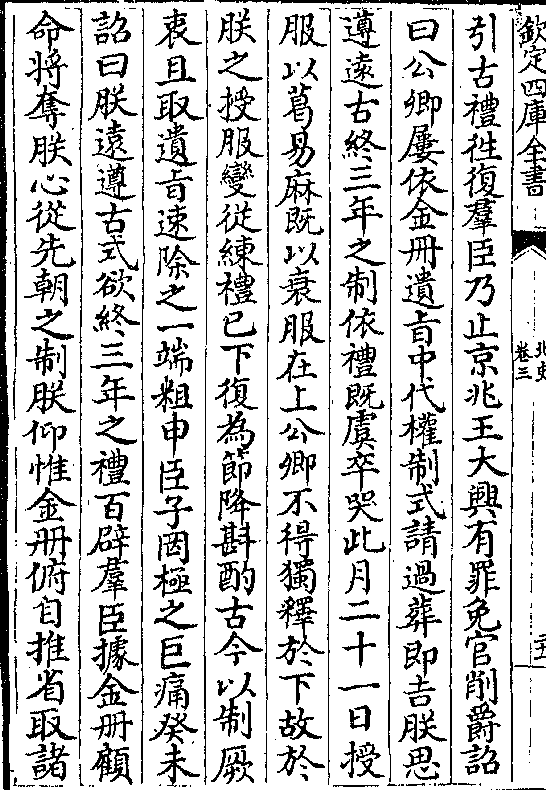 欽定四庫全書
北史
卷三
二十一
引古禮往復羣臣乃止京兆王大興有罪免官削爵詔
曰公卿屢依金册遺旨中代權制式請過葬即吉朕思
遵遠古終三年之制依禮既虞卒哭此月二十一日授
服以葛易麻既以衰服在上公卿不得獨釋於下故於
朕之授服變從練禮已下復為節降斟酌古今以制厥
衷且取遺旨速除之一端粗申臣子罔極之巨痛癸未
詔曰朕遠遵古式欲終三年之禮百辟羣臣據金册顧
命將奪朕心從先朝之制朕仰惟金册俯自推省取諸